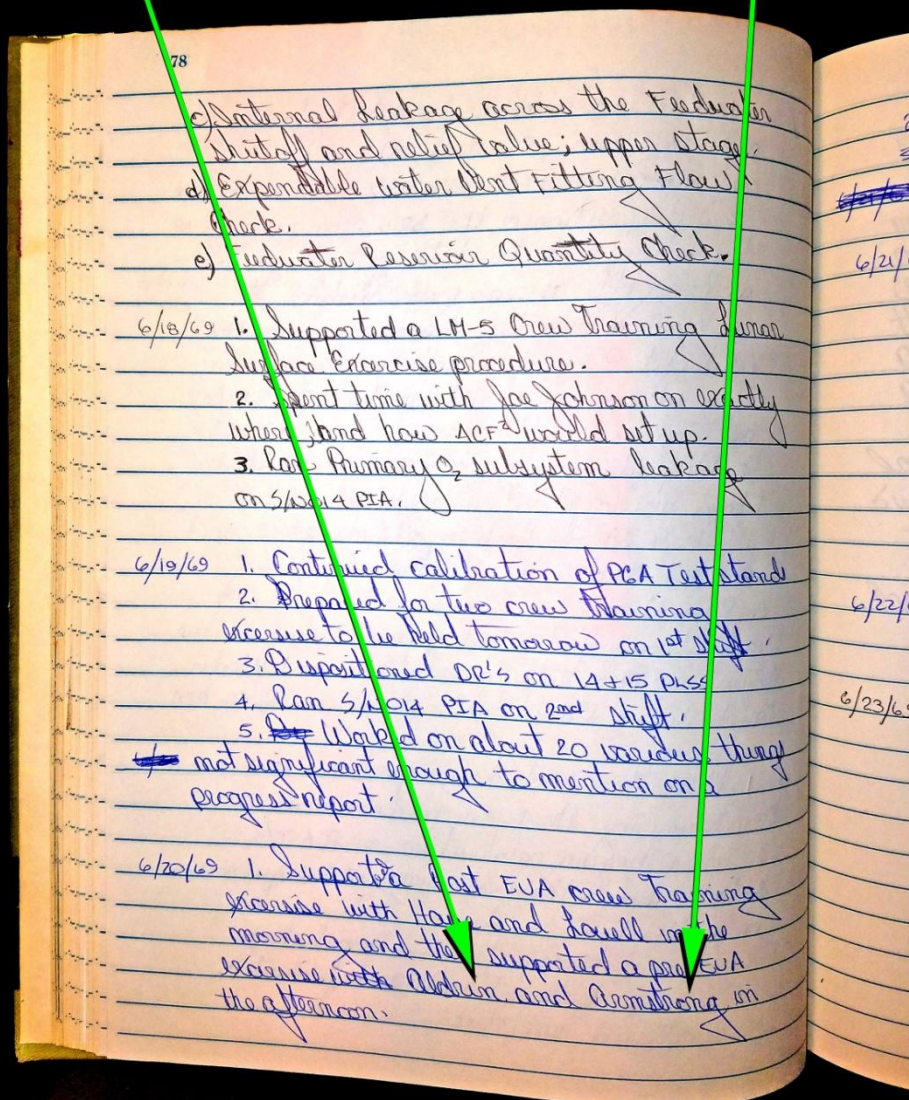 78
c) Internal Leakage across the Feedwater
shutoff and relief valve; upper stage.
d) Expendable water Vent Fitting Flow
Check.
e) Feedwater Reservoir Quantity Check.
6/18/69 1. Supported a LM-5 Crew Training Lunar
Surface Excercise procedure.
2. Spent time with Joe Johnson on exactly
where and how ACF² would set up.
3. Ran Primary O₂ subsystem leakage
on S/N 014 PIA.
6/19/69 1. Continued calibration of PGA Test stands
2. Prepared for two crew Training
excersise to be held tomorrow on 1st shift.
3. Dispositioned DR's on 14+15 PLSS
4. Ran S/N014 PIA on 2nd shift.
5. Worked on about 20 various things
not significant enough to mention on a
progress report.
6/20/69 1. Support a Post EVA crew Training
excersise with Haise and Lovell in the
morning and then supported a pre EVA
excersise with Aldrin and Armstrong in
the afternoon.
6/21/
6/22/
6/23/69